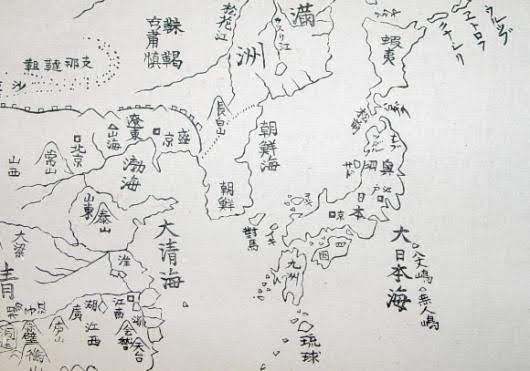 滿洲
松花江
靺鞨
古肅慎
支那韃靼
沙
蝦夷
ウルップ
エトロフ
クナシリ
長白山
朝鮮海
盛京
遼東
山海
北京
常山
山西
渤海
朝鮮
山東
泰山
大清海
大梁
淮
對馬
奥
日本
京
四国
九州
大日本海
八丈嶋
無人嶋
琉球
江西
天台
湖
江西
廣